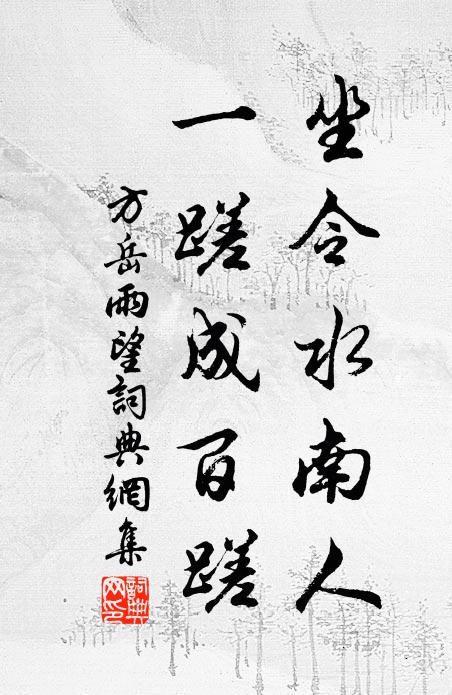 坐令水南人
一蹉成百蹉
方岳雨望詞典網集
詞典
网印